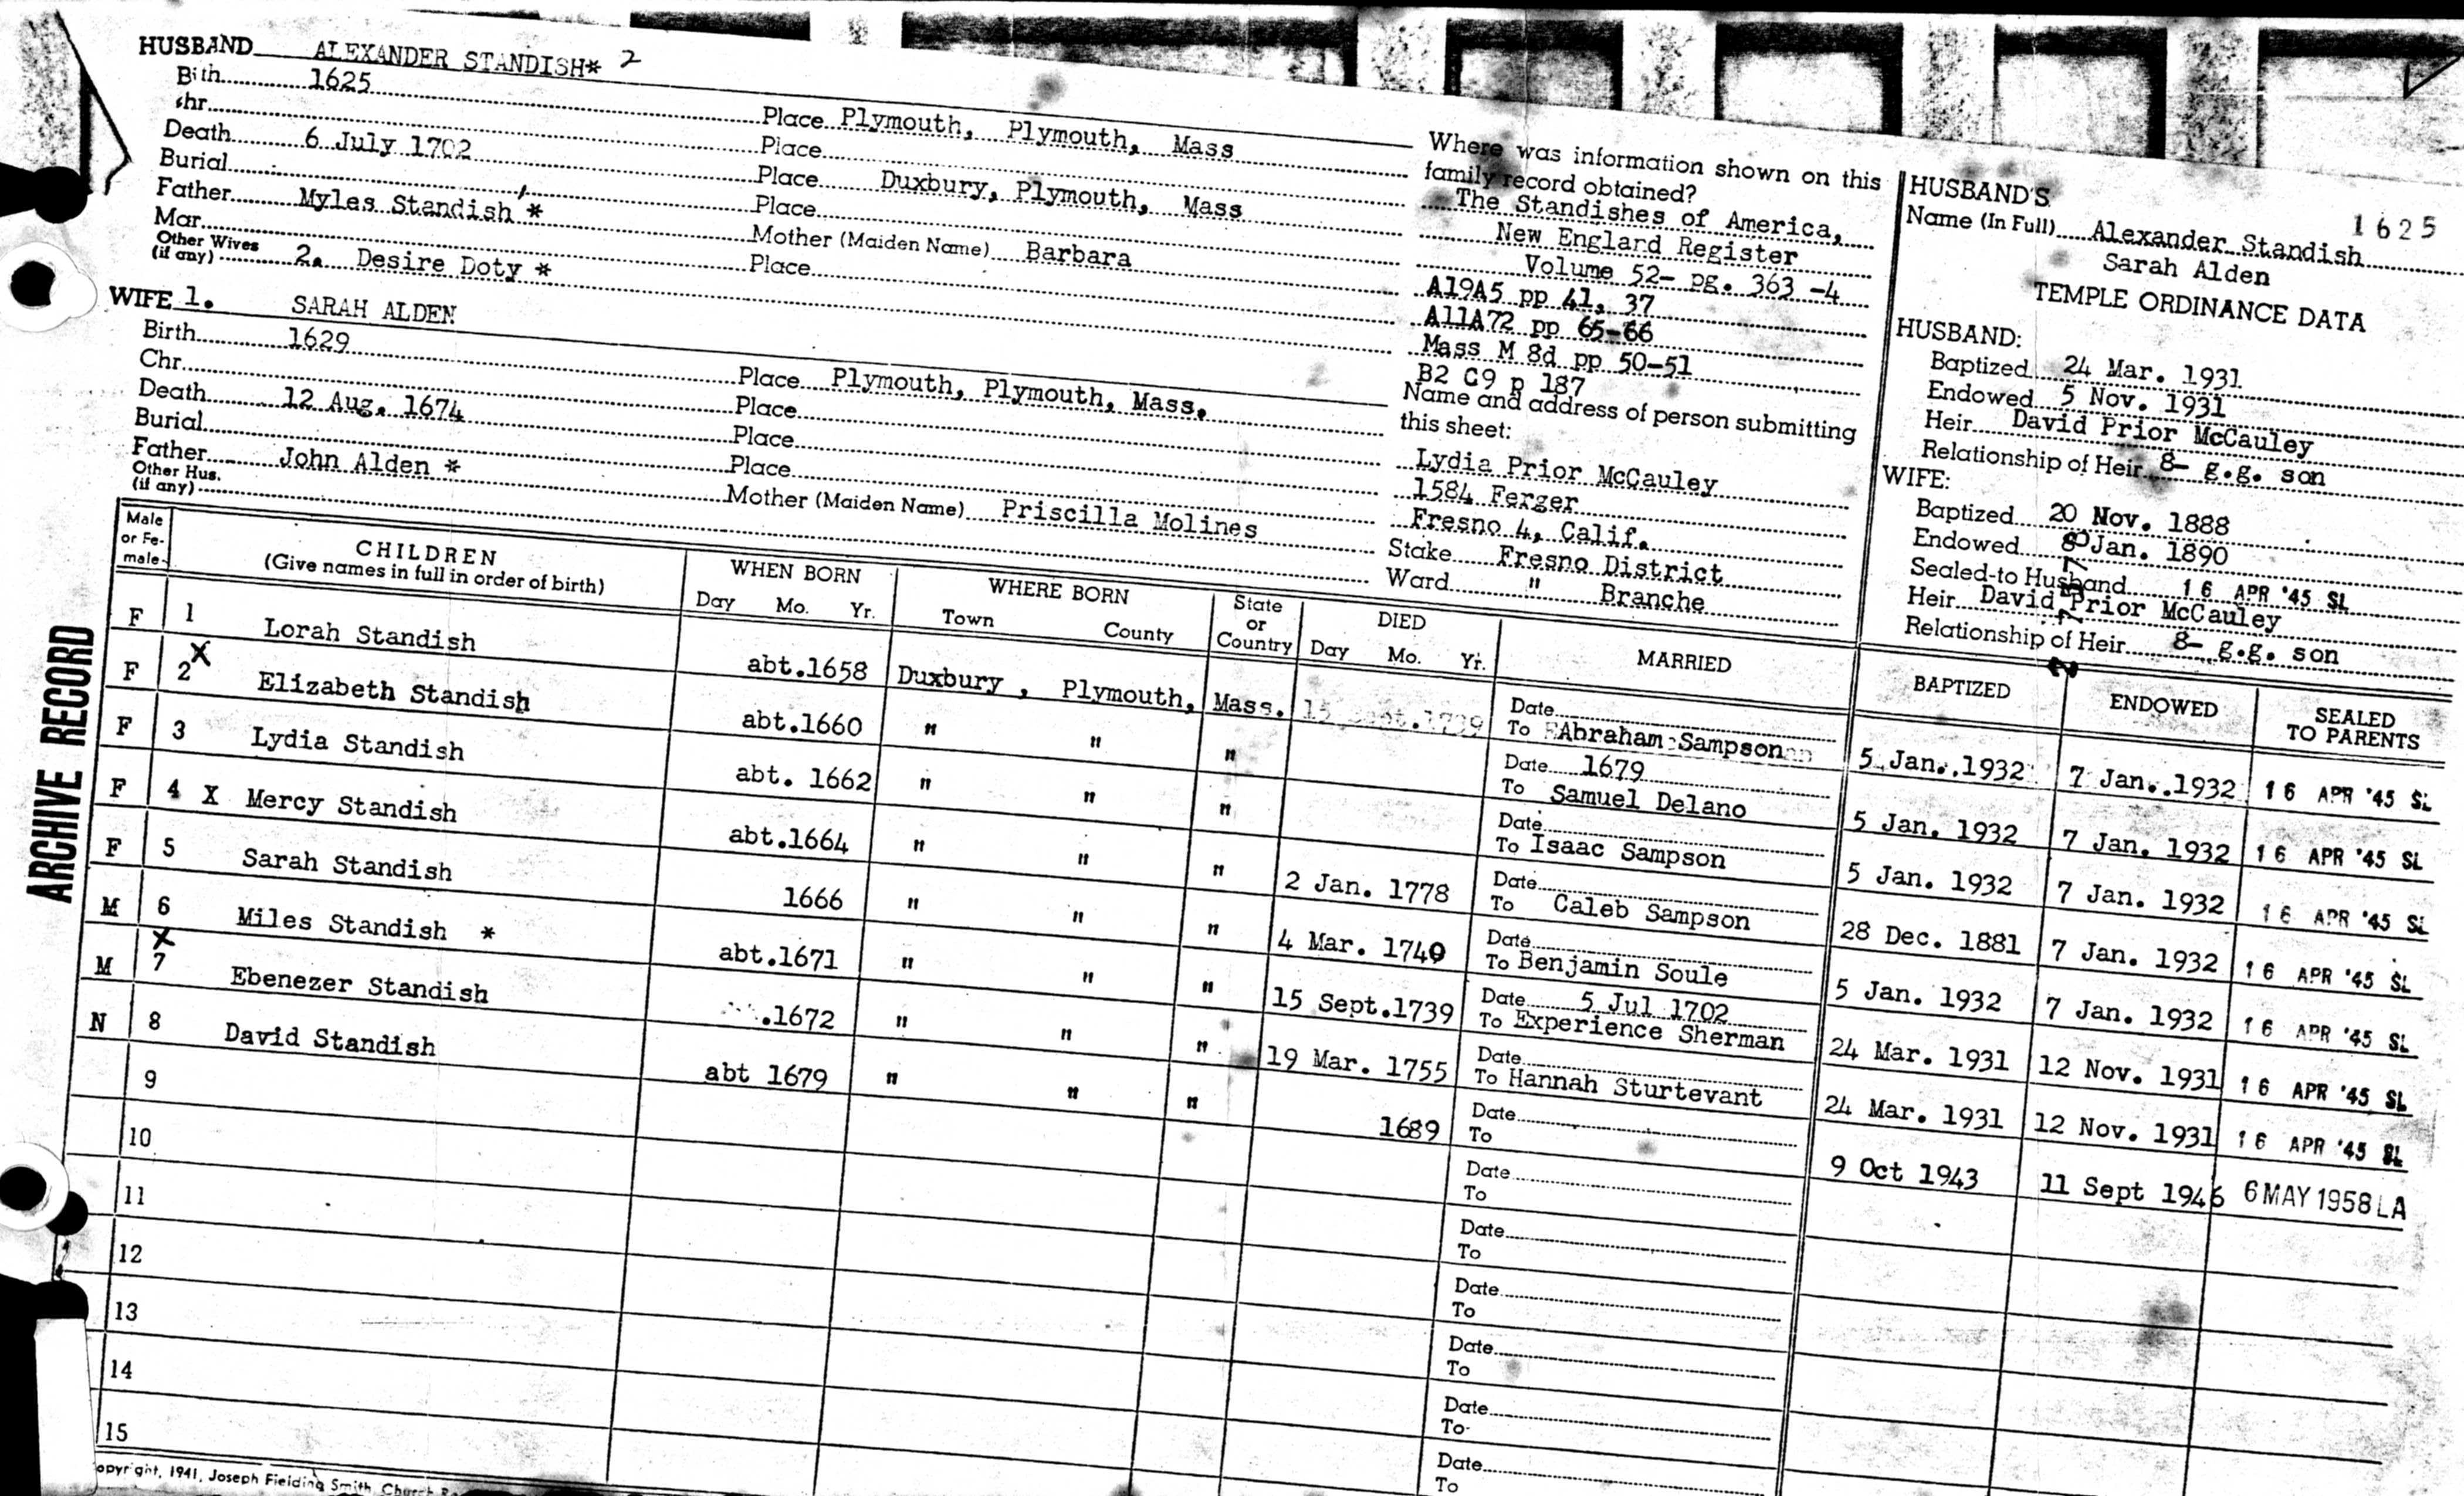 HUSBAND ALEXANDER STANDISH* 2
Birth 1625 Place Plymouth, Plymouth, Mass
chr. Place
Death 6 July 1702 Place Duxbury, Plymouth, Mass
Burial Place
Father Myles Standish * Mother (Maiden Name) Barbara
Mar. Place
Other Wives
(if any) 2. Desire Doty *
WIFE 1. SARAH ALDEN
Birth 1629 Place Plymouth, Plymouth, Mass.
Chr. Place
Death 12 Aug. 1674 Place
Burial Place
Father John Alden * Mother (Maiden Name) Priscilla Molines
Other Hus.
(if any)
Where was information shown on this
family record obtained?
The Standishes of America,
New England Register
Volume 52- pg. 363 -4
A19A5 pp 41, 37
A11A72 pp 65-66
Mass M 8d pp 50-51
B2 G9 p 187
Name and address of person submitting
this sheet:
Lydia Prior McCauley
1584 Ferger
Fresno 4, Calif.
Stake Fresno District
Ward " Branche
HUSBAND'S
1625
Name (In Full) Alexander Standish
Sarah Alden
TEMPLE ORDINANCE DATA
HUSBAND:
Baptized 24 Mar. 1931
Endowed 5 Nov. 1931
Heir David Prior McCauley
Relationship of Heir 8- g.g. son
WIFE:
Baptized 20 Nov. 1888
Endowed 8 Jan. 1890
Sealed to Husband 16 APR '45 SL
Heir David Prior McCauley
Relationship of Heir 8- g.g. son
Male or Female CHILDREN (Give names in full in order of birth) WHEN BORN Day Mo. Yr. WHERE BORN Town County State or Country DIED Day Mo. Yr. MARRIED BAPTIZED ENDOWED SEALED TO PARENTS
F 1 Lorah Standish abt.1658 Duxbury , Plymouth, Mass. Date
To Abraham Sampson 5 Jan. 1932 7 Jan. 1932 16 APR '45 SL
F 2 X Elizabeth Standish abt.1660 " " " Date 1679
To Samuel Delano 5 Jan. 1932 7 Jan. 1932 16 APR '45 SL
F 3 Lydia Standish abt. 1662 " " " Date
To Isaac Sampson 5 Jan. 1932 7 Jan. 1932 16 APR '45 SL
F 4 X Mercy Standish abt.1664 " " " 2 Jan. 1778 Date
To Caleb Sampson 28 Dec. 1881 7 Jan. 1932 16 APR '45 SL
F 5 Sarah Standish 1666 " " " 4 Mar. 1740 Date
To Benjamin Soule 5 Jan. 1932 7 Jan. 1932 16 APR '45 SL
M 6 Miles Standish * abt.1671 " " " 15 Sept.1739 Date 5 Jul 1702
To Experience Sherman 24 Mar. 1931 12 Nov. 1931 16 APR '45 SL
M X 7 Ebenezer Standish 1672 " " " 19 Mar. 1755 Date
To Hannah Sturtevant 24 Mar. 1931 12 Nov. 1931 16 APR '45 SL
N 8 David Standish abt 1679 " " " 1689 Date
To 9 Oct 1943 11 Sept 1946 6 MAY 1958 LA
9 Date
To
10 Date
To
11 Date
To
12 Date
To
13 Date
To
14 Date
To
15 Date
To
ARCHIVE RECORD
opyright, 1941, Joseph Fielding Smith, Church